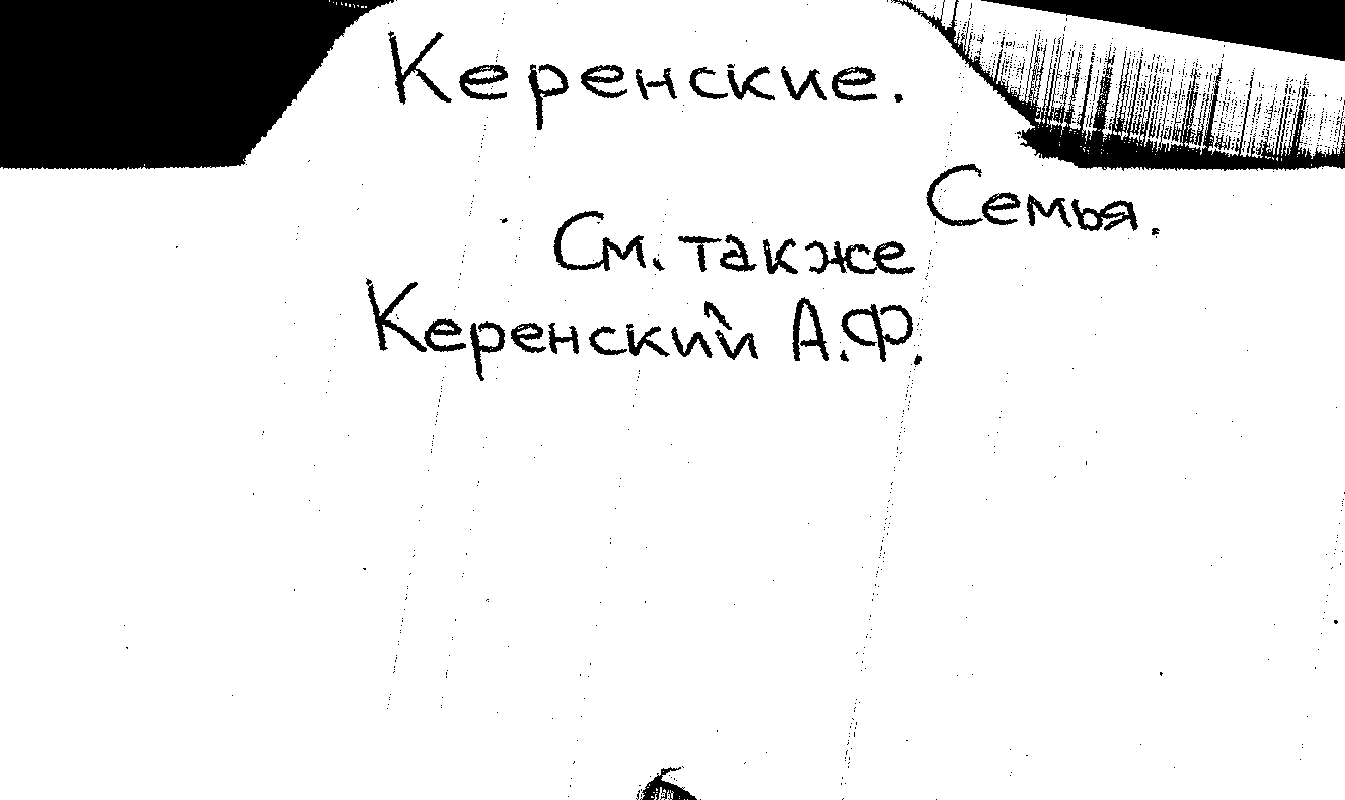 Керенские.
Семья.
См. также
Керенский А.Ф.